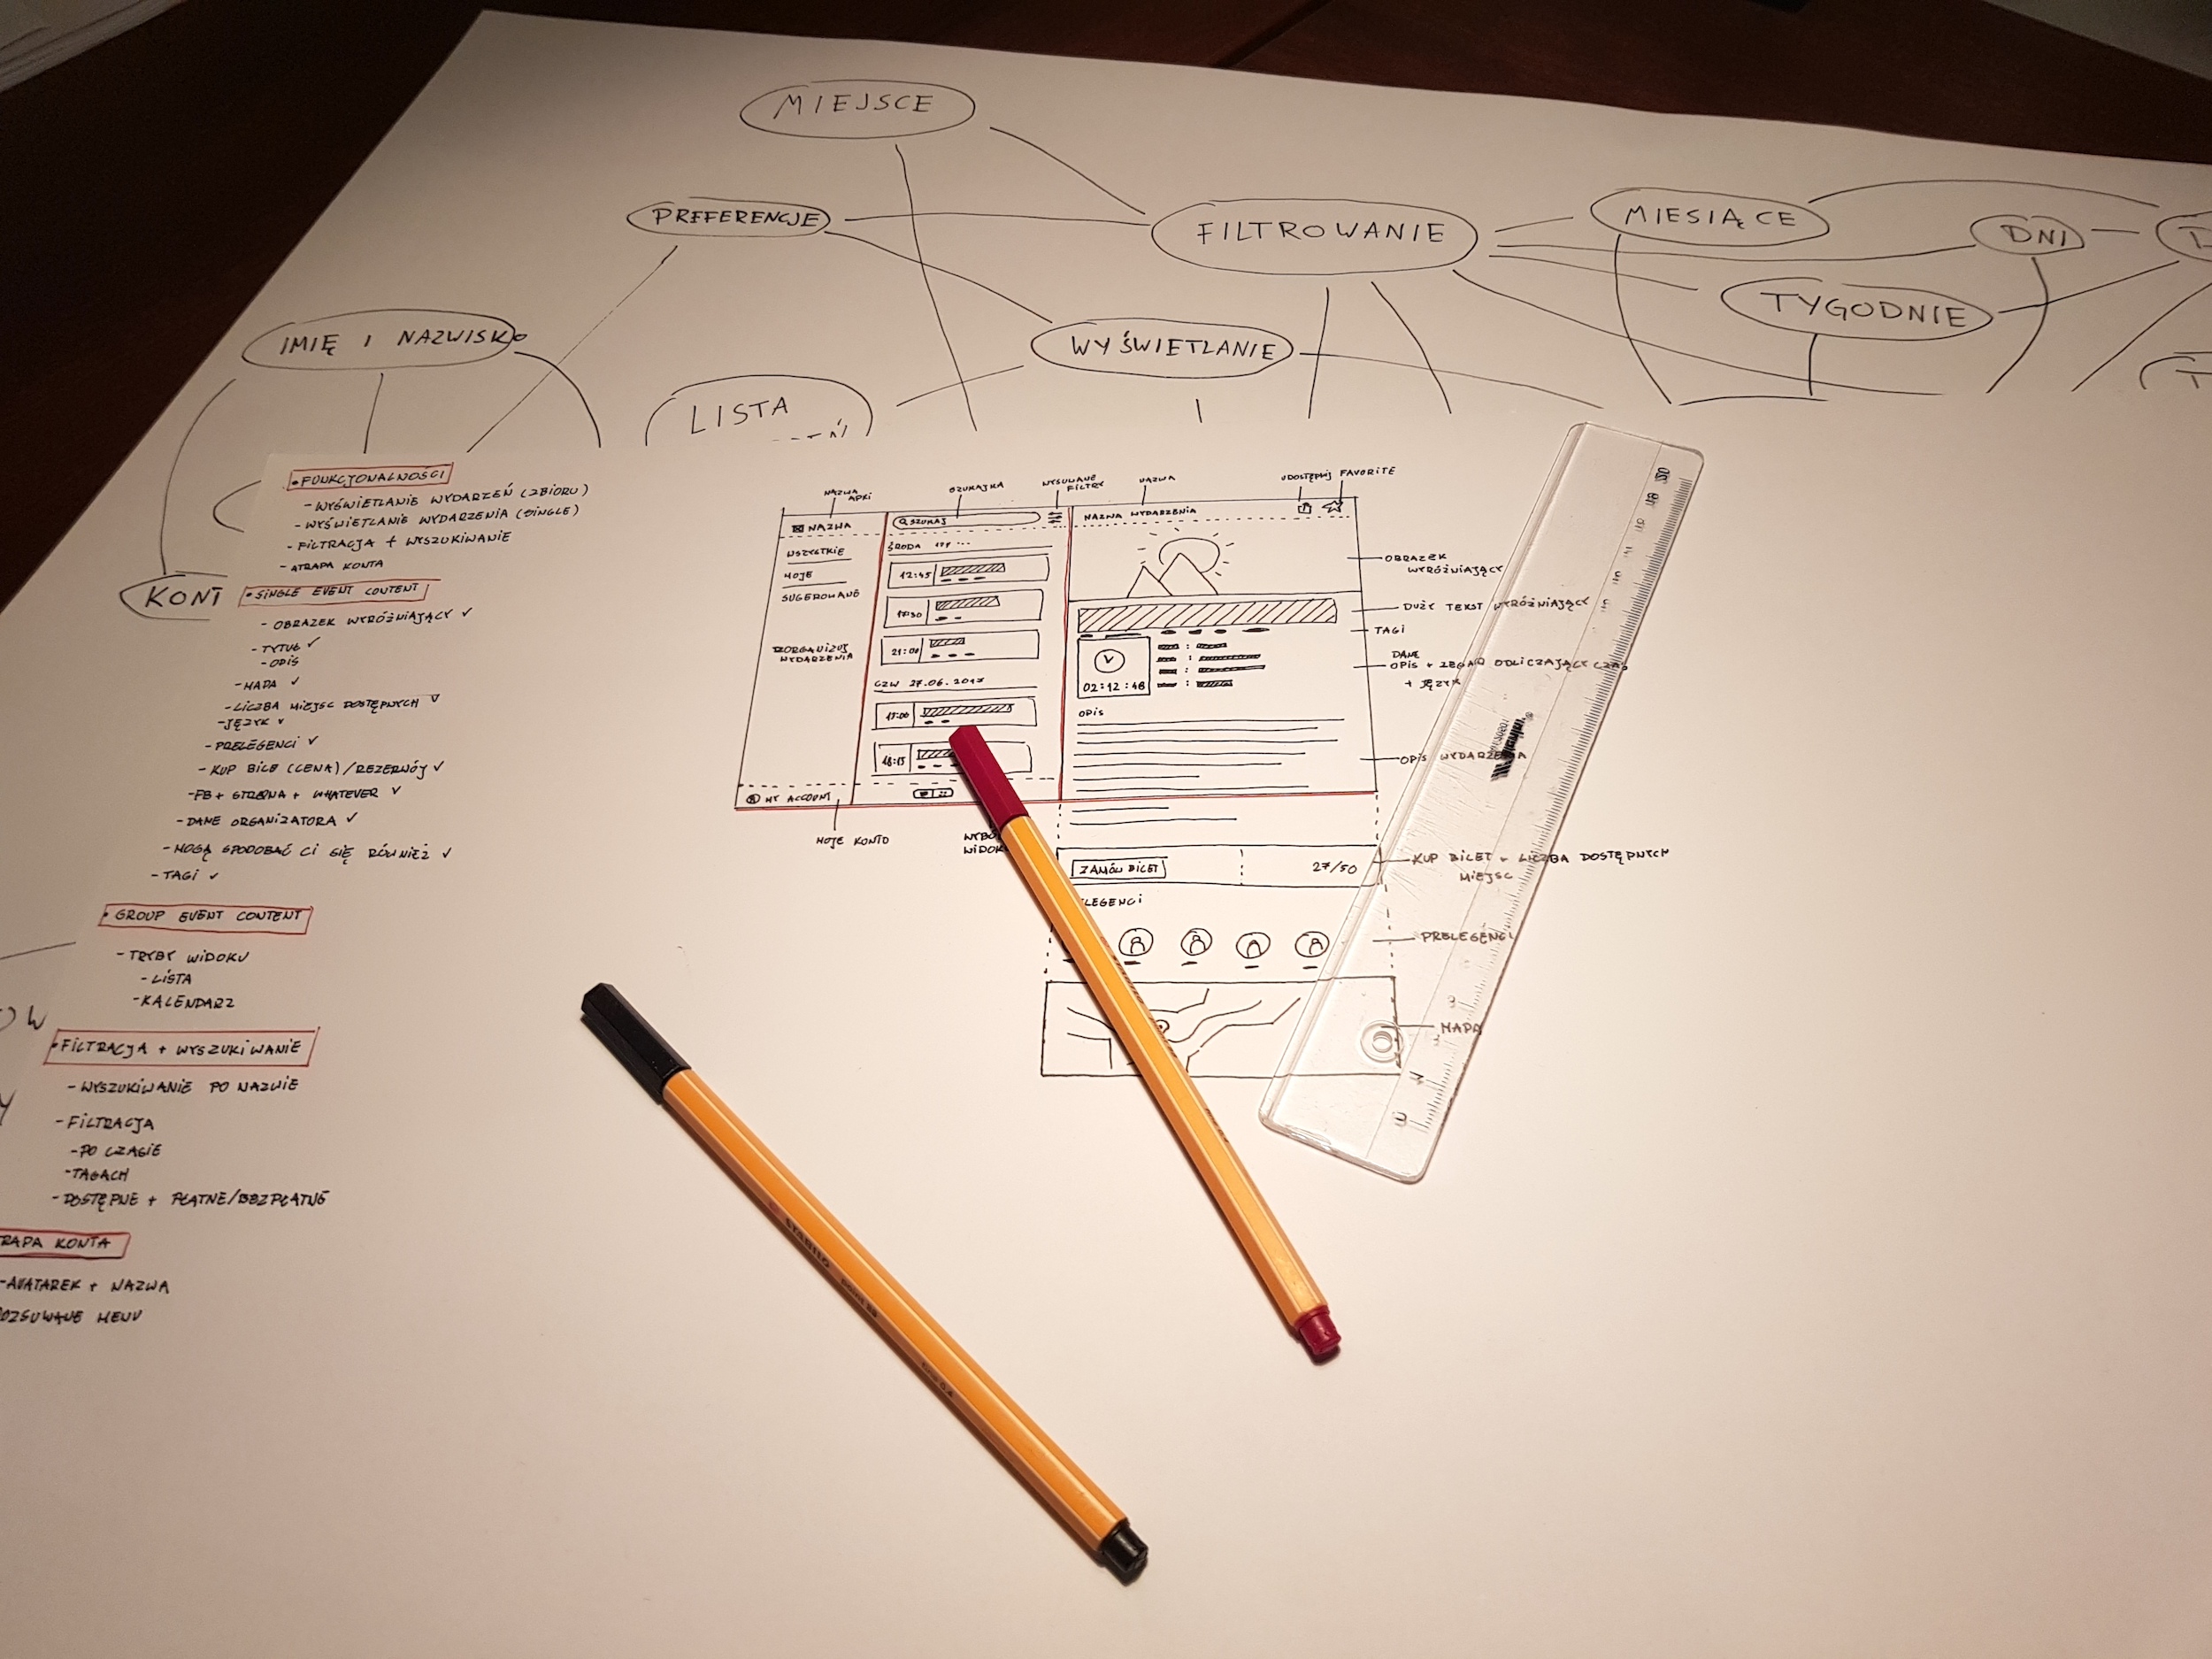 MIEJSCE
PREFERENCJE
FILTROWANIE
MIESIĄCE
DNI
TYGODNIE
IMIĘ I NAZWISKO
WYŚWIETLANIE
LISTA
KONT
• FUNKCJONALNOŚCI
- WYŚWIETLANIE WYDARZEŃ (ZBIORU)
- WYŚWIETLANIE WYDARZENIA (SINGLE)
- FILTRACJA + WYSZUKIWANIE
- ATRAPA KONTA
• SINGLE EVENT CONTENT
- OBRAZEK WYRÓŻNIAJĄCY ✓
- TYTUŁ ✓
- OPIS
- MAPA ✓
- LICZBA MIEJSC DOSTĘPNYCH ✓
- JĘZYK ✓
- PRELEGENCI ✓
- KUP BILE (CENA) / REZERWUJ ✓
- FB + STRONA + WHATEVER ✓
- DANE ORGANIZATORA ✓
- MOGĄ SPODOBAĆ CI SIĘ RÓWNIEŻ ✓
- TAGI ✓
• GROUP EVENT CONTENT
- TRYBY WIDOKU
- LISTA
- KALENDARZ
• FILTRACJA + WYSZUKIWANIE
- WYSZUKIWANIE PO NAZWIE
- FILTRACJA
- PO CZASIE
- TAGACH
- DOSTĘPNE + PŁATNE/BEZPŁATNE
RAPA KONTA
- AVATAREK + NAZWA
OZSUWANE MENU
NAZWA
APKI
SZUKAJKA
WYSUWANE
FILTRY
NAZWA
UDOSTĘPNIJ
FAVORITE
NAZWA
SZUKAJ
NAZWA WYDARZENIA
WSZYSTKIE
MOJE
SUGEROWANE
ZORGANIZUJ
WYDARZENIA
MY ACCOUNT
MOJE KONTO
ŚRODA
12:45
17:30
21:00
CZW 27.06.2017
17:00
18:15
WYBÓ
WIDOK
02:12:48
OPIS
ZAMÓW BILET
27/50
LEGENCI
OBRAZEK
WYRÓŻNIAJĄCY
DUŻY TEKST WYRÓŻNIAJĄCY
TAGI
DANE
OPIS + ZEGAR ODLICZAJĄCY CZAS
+ JĘZYK
OPIS WYDARZENIA
KUP BILET + LICZBA DOSTĘPNYCH
MIEJSC
PRELEGENCI
MAPA
STABILO